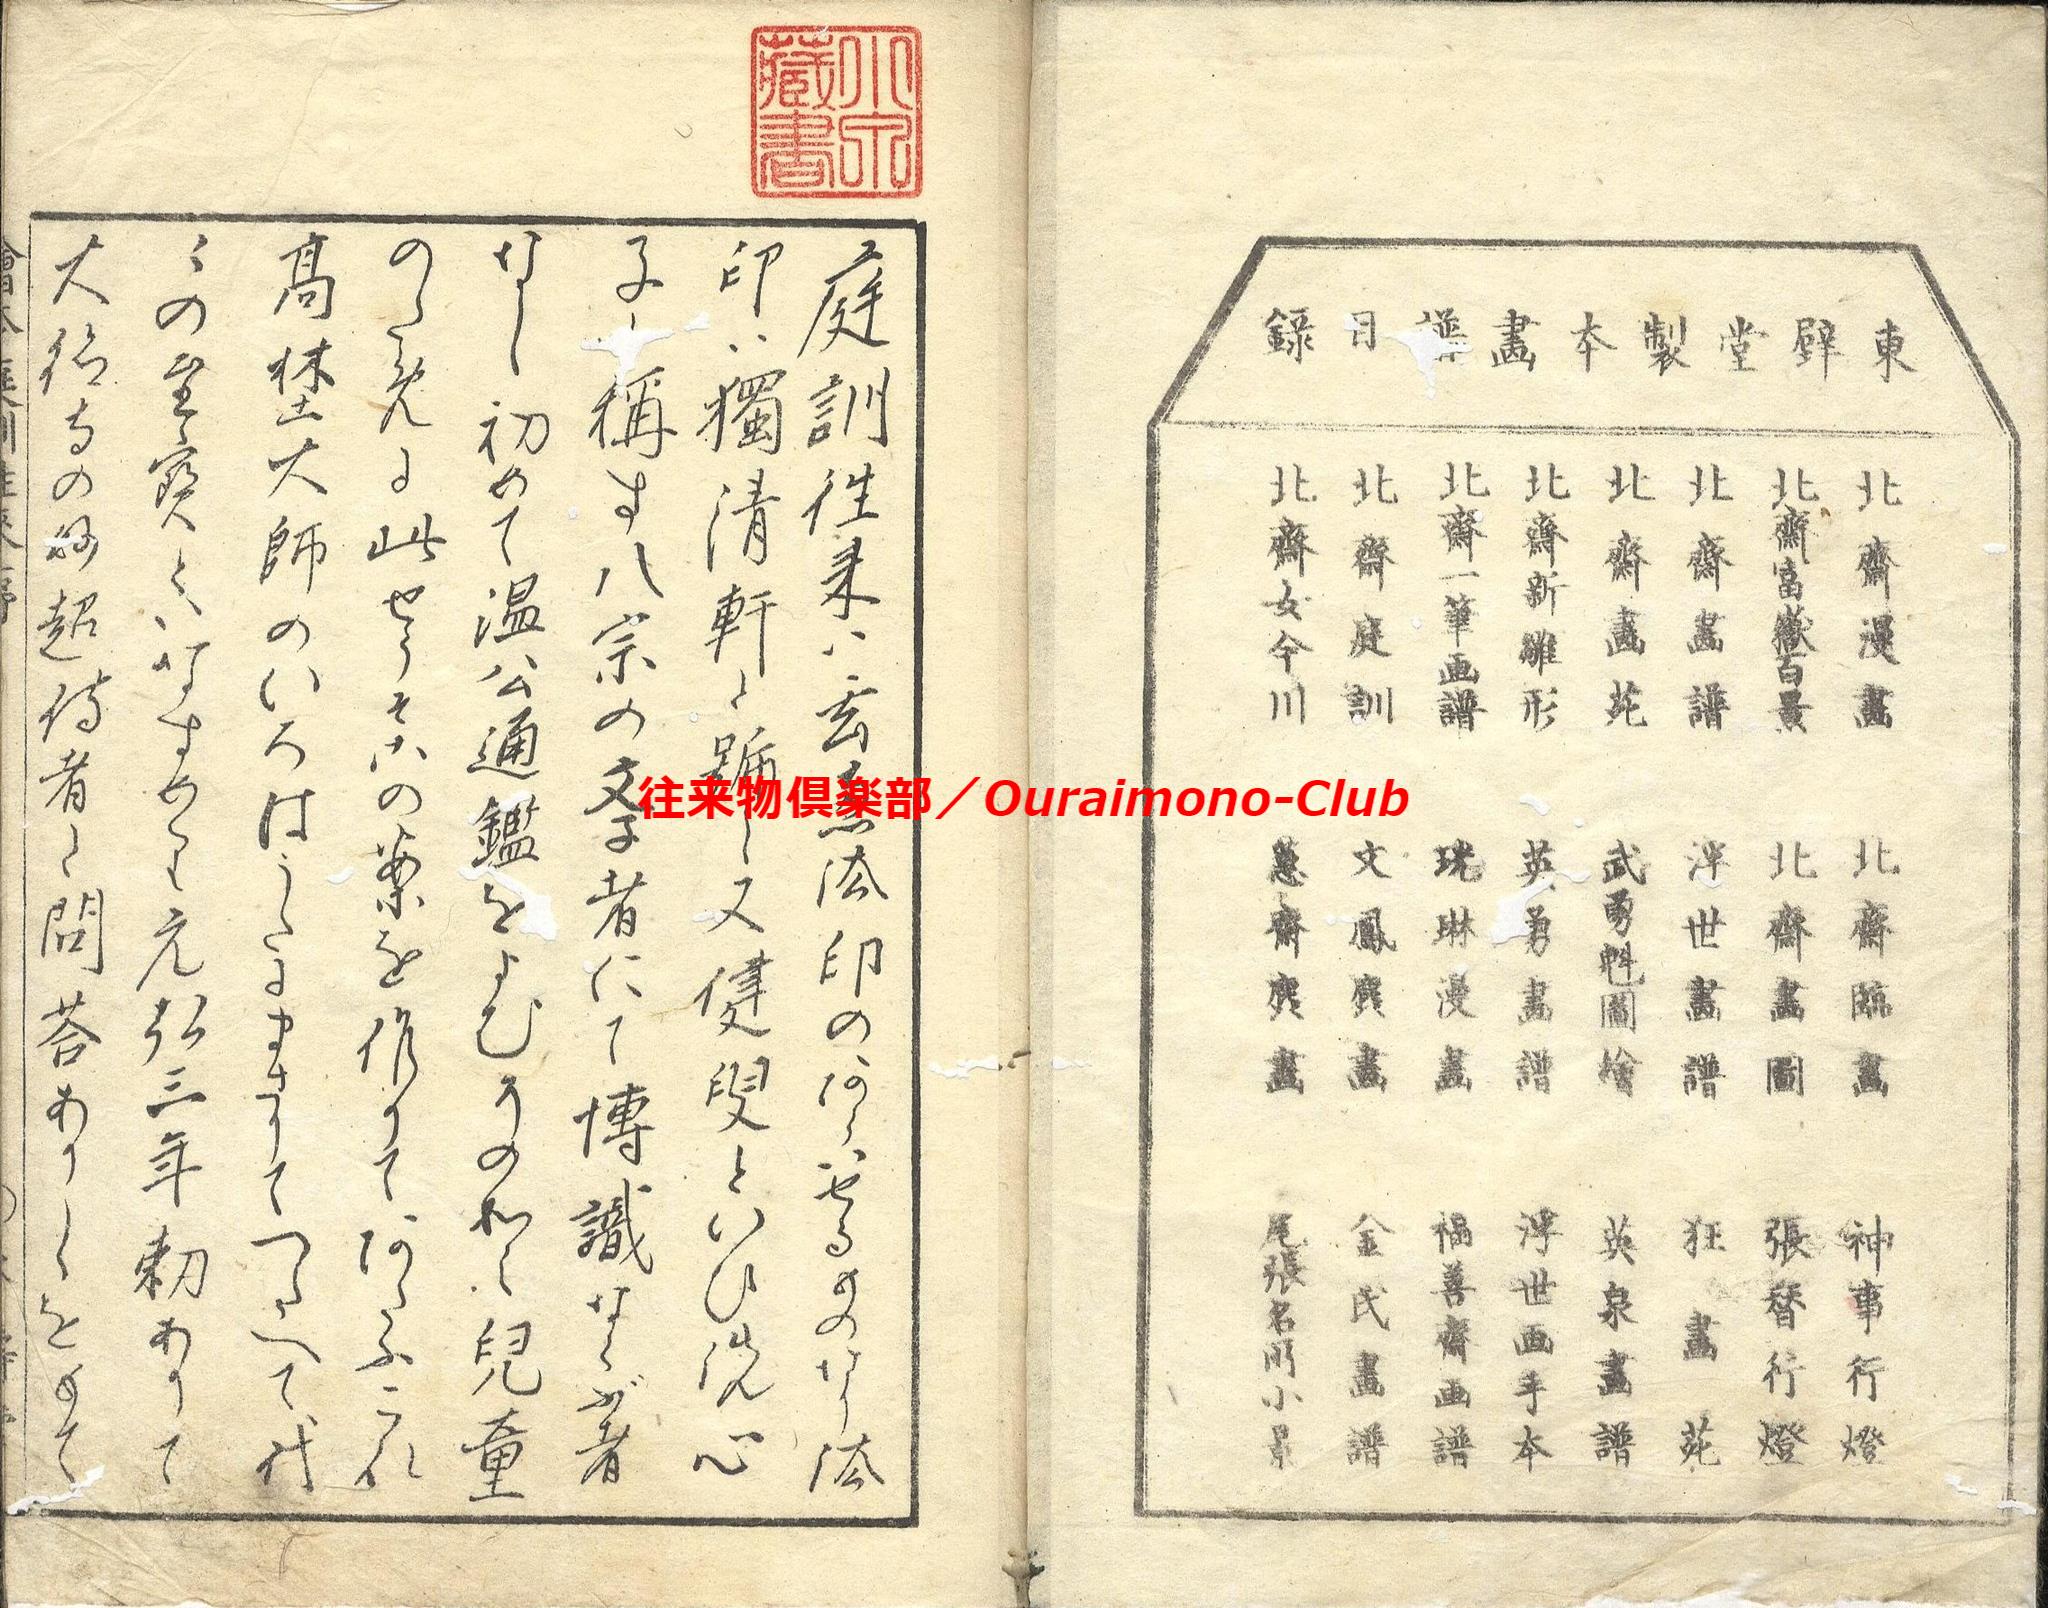 東壁堂製本畫譜目録
北齋漫畫
北齋富嶽百景
北齋畫譜
北齋畫苑
北齋新雛形
北齋一筆画譜
北齋庭訓
北齋女今川
北齋臨畫
北齋畫圖
浮世畫譜
武勇魁圖會
英勇畫譜
光琳漫畫
文鳳麁畫
蕙齋麁畫
神事行燈
張替行燈
狂畫苑
英泉畫譜
浮世画手本
福善齋画譜
金氏畫譜
尾張名所小景
小泉藏書
庭訓徃来ハ玄惠法印のあらハせるものなり法
印ハ獨清軒と號し又健叟といひ洗心
子と稱す八宗の文学者にて博識なるが著
なし初めて温公通鑑をよむ
兒童
のために此せうそこの藁を作りてあたふこれ
高埜大師のいろはうたにまさりてつたへて代
々の至寳とハなすめり元弘三年勅ありて
大徳寺の妙超侍者と問荅ありしをもて
繪本庭訓徃来序
往来物倶楽部／Ouraimono-Club